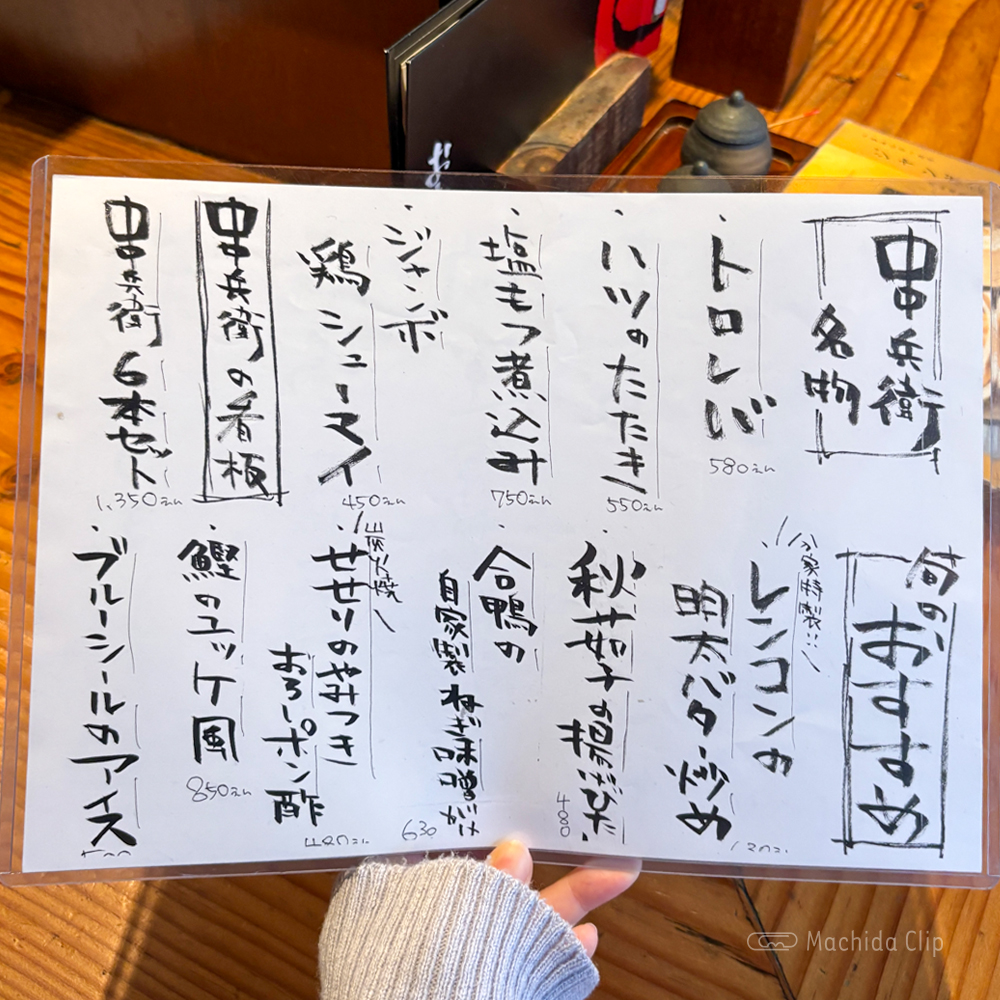 串兵衛
名物
・トロレバ
580えん
・ハツのたたき
550えん
・塩もつ煮込み
750えん
・ジャンボ
鶏シューマイ
450えん
串兵衛の看板
串兵衛 6本セット
1,350えん
旬のおすすめ
分家特製!!
・レンコンの
明太バター炒め
・秋茄子の揚げびたし
480
・合鴨の
自家製ねぎ味噌がけ
630
炭火焼
・せせりのやみつき
おろしポン酢
・鰹のユッケ風
850えん
・ブルーシールのアイス
Machida Clip